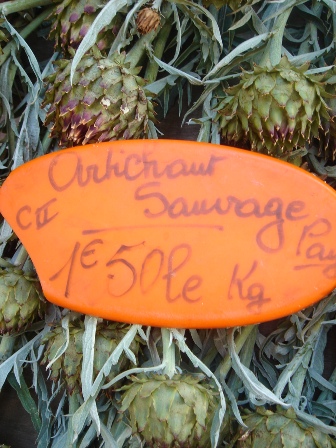 Artichaut
CII Sauvage
1€50 le Kg